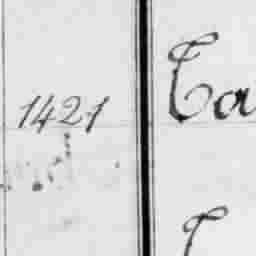 1421 Ca